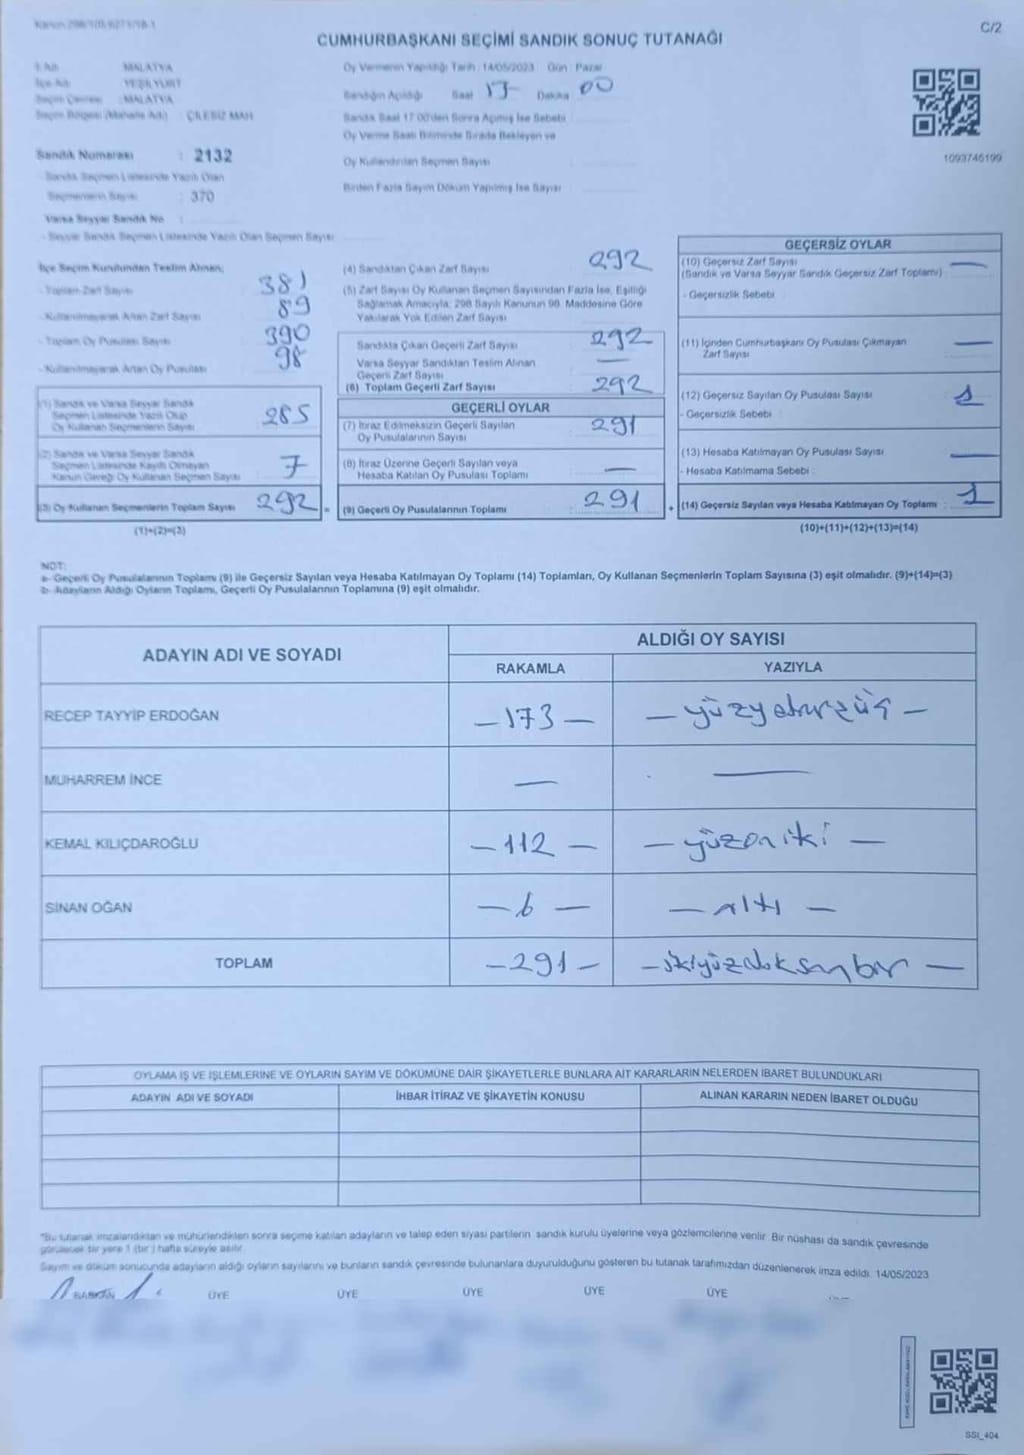 Kanun 298/100,6271/18-1
C/2
CUMHURBAŞKANI SEÇİMİ SANDIK SONUÇ TUTANAĞI
İl Adı : MALATYA
İlçe Adı : YEŞİLYURT
Seçim Çevresi : MALATYA
Seçim Bölgesi (Mahalle Adı) : ÇİLESİZ MAH
Sandık Numarası : 2132
- Sandık Seçmen Listesinde Yazılı Olan
Seçmenlerin Sayısı : 370
Varsa Seyyar Sandık No :
- Seyyar Sandık Seçmen Listesinde Yazılı Olan Seçmen Sayısı
Oy Vermenin Yapıldığı Tarih : 14/05/2023 Gün : Pazar
Sandığın Açıldığı Saat 17 Dakika 00
Sandık Saat 17:00'den Sonra Açılmış İse Sebebi
Oy Verme Saati Bitiminde Sırada Bekleyen ve
Oy Kullandırılan Seçmen Sayısı
Birden Fazla Sayım Döküm Yapılmış İse Sayısı
1093746199
İlçe Seçim Kurulundan Teslim Alınan;
- Toplam Zarf Sayısı 381
- Kullanılmayarak Artan Zarf Sayısı 89
- Toplam Oy Pusulası Sayısı 390
- Kullanılmayarak Artan Oy Pusulası 98
(1) Sandık ve Varsa Seyyar Sandık
Seçmen Listesinde Yazılı Olup
Oy Kullanan Seçmenlerin Sayısı 285
(2) Sandık ve Varsa Seyyar Sandık
Seçmen Listesinde Kayıtlı Olmayan
Kanun Gereği Oy Kullanan Seçmen Sayısı 7
(3) Oy Kullanan Seçmenlerin Toplam Sayısı 292 =
(1)+(2)=(3)
(4) Sandıktan Çıkan Zarf Sayısı 292
(5) Zarf Sayısı Oy Kullanan Seçmen Sayısından Fazla İse, Eşitliği
Sağlamak Amacıyla; 298 Sayılı Kanunun 98. Maddesine Göre
Yakılarak Yok Edilen Zarf Sayısı
Sandıkta Çıkan Geçerli Zarf Sayısı 292
Varsa Seyyar Sandıktan Teslim Alınan
Geçerli Zarf Sayısı —
(6) Toplam Geçerli Zarf Sayısı 292
GEÇERLİ OYLAR
(7) İtiraz Edilmeksizin Geçerli Sayılan
Oy Pusulalarının Sayısı 291
(8) İtiraz Üzerine Geçerli Sayılan veya
Hesaba Katılan Oy Pusulası Toplamı —
(9) Geçerli Oy Pusulalarının Toplamı : 291 +
GEÇERSİZ OYLAR
(10) Geçersiz Zarf Sayısı —
(Sandık ve Varsa Seyyar Sandık Geçersiz Zarf Toplamı)
- Geçersizlik Sebebi :
(11) İçinden Cumhurbaşkanı Oy Pusulası Çıkmayan
Zarf Sayısı —
(12) Geçersiz Sayılan Oy Pusulası Sayısı 1
- Geçersizlik Sebebi :
(13) Hesaba Katılmayan Oy Pusulası Sayısı —
- Hesaba Katılmama Sebebi :
(14) Geçersiz Sayılan veya Hesaba Katılmayan Oy Toplamı : 1
(10)+(11)+(12)+(13)=(14)
NOT:
a- Geçerli Oy Pusulalarının Toplamı (9) ile Geçersiz Sayılan veya Hesaba Katılmayan Oy Toplamı (14) Toplamları, Oy Kullanan Seçmenlerin Toplam Sayısına (3) eşit olmalıdır. (9)+(14)=(3)
b- Adayların Aldığı Oyların Toplamı, Geçerli Oy Pusulalarının Toplamına (9) eşit olmalıdır.
ADAYIN ADI VE SOYADI
ALDIĞI OY SAYISI
RAKAMLA YAZIYLA
RECEP TAYYİP ERDOĞAN — 173 — — yüzyetmişüç —
MUHARREM İNCE — —
KEMAL KILIÇDAROĞLU — 112 — — yüzoniki —
SİNAN OĞAN — 6 — — altı —
TOPLAM — 291 — — ikiyüzdoksanbir —
OYLAMA İŞ VE İŞLEMLERİNE VE OYLARIN SAYIM VE DÖKÜMÜNE DAİR ŞİKAYETLERLE BUNLARA AİT KARARLARIN NELERDEN İBARET BULUNDUKLARI
ADAYIN ADI VE SOYADI İHBAR İTİRAZ VE ŞİKAYETİN KONUSU ALINAN KARARIN NEDEN İBARET OLDUĞU
*Bu tutanak imzalandıktan ve mühürlendikten sonra seçime katılan adayların ve talep eden siyasi partilerin sandık kurulu üyelerine veya gözlemcilerine verilir. Bir nüshası da sandık çevresinde
görülecek bir yere 1 (bir) hafta süreyle asılır.
Sayım ve döküm sonucunda adayların aldığı oyların sayılarını ve bunların sandık çevresinde bulunanlara duyurulduğunu gösteren bu tutanak tarafımızdan düzenlenerek imza edildi. 14/05/2023
BAŞKAN ÜYE ÜYE ÜYE ÜYE ÜYE
SSI_404